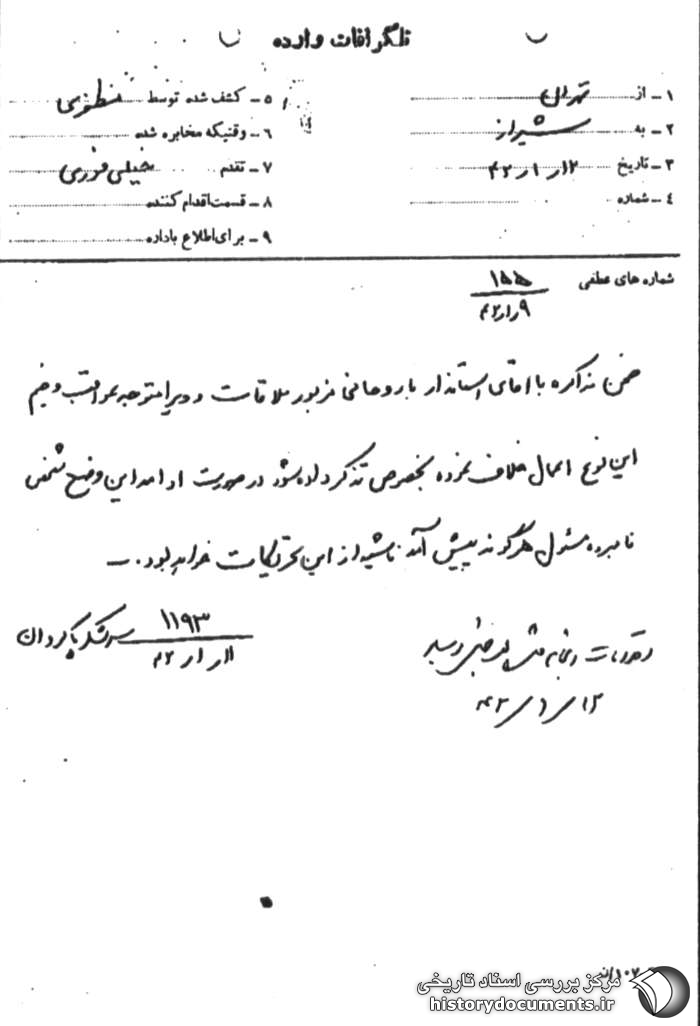 تلگرافات وارده
۱ـ از تهران
۲ـ به شیراز
۳ـ تاریخ ۱۲ر۱ر۴۲
۴ـ شماره
۵ـ کشف شده توسط
۶ـ وقتیکه مخابره شده
۷ـ تقدم خیلی فوری
۸ـ قسمت اقدام کننده
۹ـ برای اطلاع باداره
شماره های عطفی ۱۵۵
۹ر۱ر۴۲
ضمن مذاکره با آقای استاندار با روحانی مزبور ملاقات و ویرا متوجه عواقب وخیم
این نوع اعمال خلاف نموده بخصوص تذکر داده شود در صورت ادامه این وضع شخص
نامبرده مسئول هر گونه پیش آمد ناشیه از این تحریکات خواهد بود. ـ
۱۱۹۳ سرلشگر پاکروان
۱۱ر۱ر۴۲
۱۲ر۱ر۴۲
۱۰۷
مرکز بررسی اسناد تاریخی
historydocuments.ir